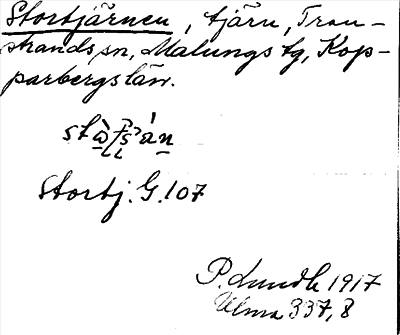 Stortjärnen, tjärn, Tran-
strands sn, Malungs tg, Kop-
parbergs län.
Stortj. G. 107
P. Lundh 1917
Ulma 337, 8